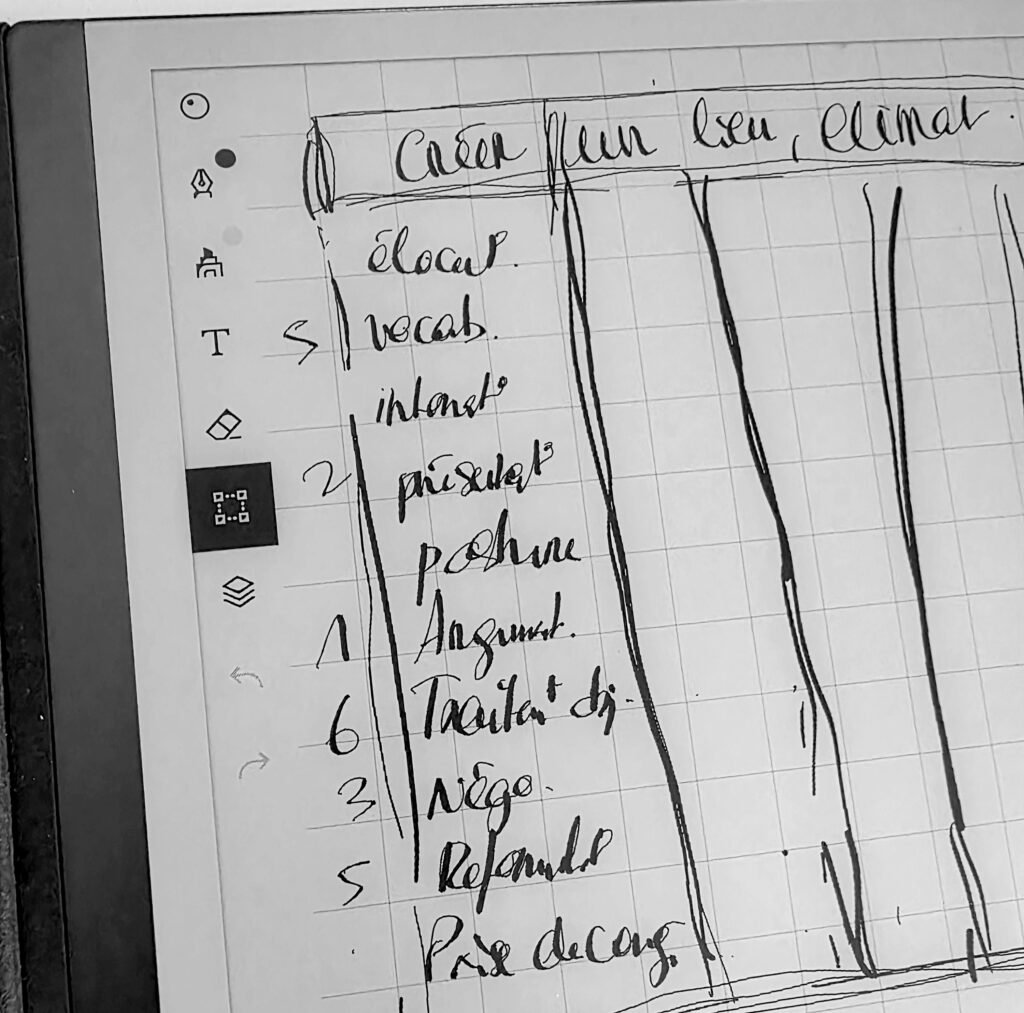 Créer un lieu, climat.
élocut°.
5 vocab.
intonat°
2 présentat°
posture
1 Argument.
T
6 Traitent obj.
3 Négo.
5 Reformulat°
Prise de cong.